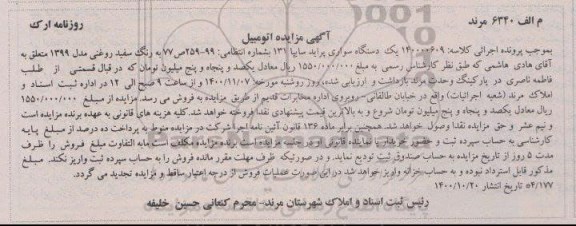 م الف ۶۳۴۰ مرند
روزنامه ارک
آگهی مزایده اتومبیل
بموجب پرونده اجرائی کلاسه: ۱۴۰۰۰۰۶۰۹ یک دستگاه سواری پراید سایپا ۱۳۱ بشماره انتظامی: ۹۹-۲۵۹ص۷۷ به رنگ سفید روغنی مدل ۱۳۹۹ متعلق به
آقای هادی هاشمی که طبق نظر کارشناس رسمی به مبلغ ۱۵۵۰/۰۰۰/۰۰۰ ریال معادل یکصد و پنجاه و پنج میلیون تومان که در قبال قسمتی از طلب
فاطمه ناصری در پارکینگ وحدت مرند بازداشت و ارزیابی شده، روز روشنبه مورخه ۱۴۰۰/۱۱/۰۷ و از ساعت ۹ صبح الی ۱۲ در اداره ثبت اسناد و
املاک مرند (شعبه اجرائیات) واقع در خیابان طالقانی- روبروی اداره مخابرات قدیم از طریق مزایده به فروش می رسد. مزایده از مبلغ ۱۵۵۰/۰۰۰/۰۰۰
ریال معادل یکصد و پنجاه و پنج میلیون تومان شروع و به بالاترین قیمت پیشنهادی نقدا فروخته خواهد شد. کلیه هزینه های قانونی به عهده برنده مزایده است
و نیم عشر و حق مزایده نقدا وصول خواهد شد. همچنین برابر ماده ۱۳۶ قانون آئین نامه اجرا شرکت در مزایده منوط به پرداخت ده درصد از مبلغ پایه
کارشناسی به حساب سپرده ثبت و حضور خریدار یا نماینده قانونی او در جلسه مزایده است. برنده مزایده مکلف است مابه التفاوت مبلغ فروش را ظرف
مدت ۵ روز از تاریخ مزایده به حساب صندوق ثبت تودیع نماید. و در صورتیکه ظرف مهلت مقرر مانده فروش را به حساب سپرده ثبت واریز نکند. مبلغ
مذکور قابل استرداد نبوده و به حساب خزانه واریز خواهد شد در این صورت عملیات فروش از درجه اعتبار ساقط و مزایده تجدید می گردد.
۵۴/۱۷۷ تاریخ انتشار ۱۴۰۰/۱۰/۲۰
رئیس ثبت اسناد و املاک شهرستان مرند- محرم کنعانی حسین خلیفه